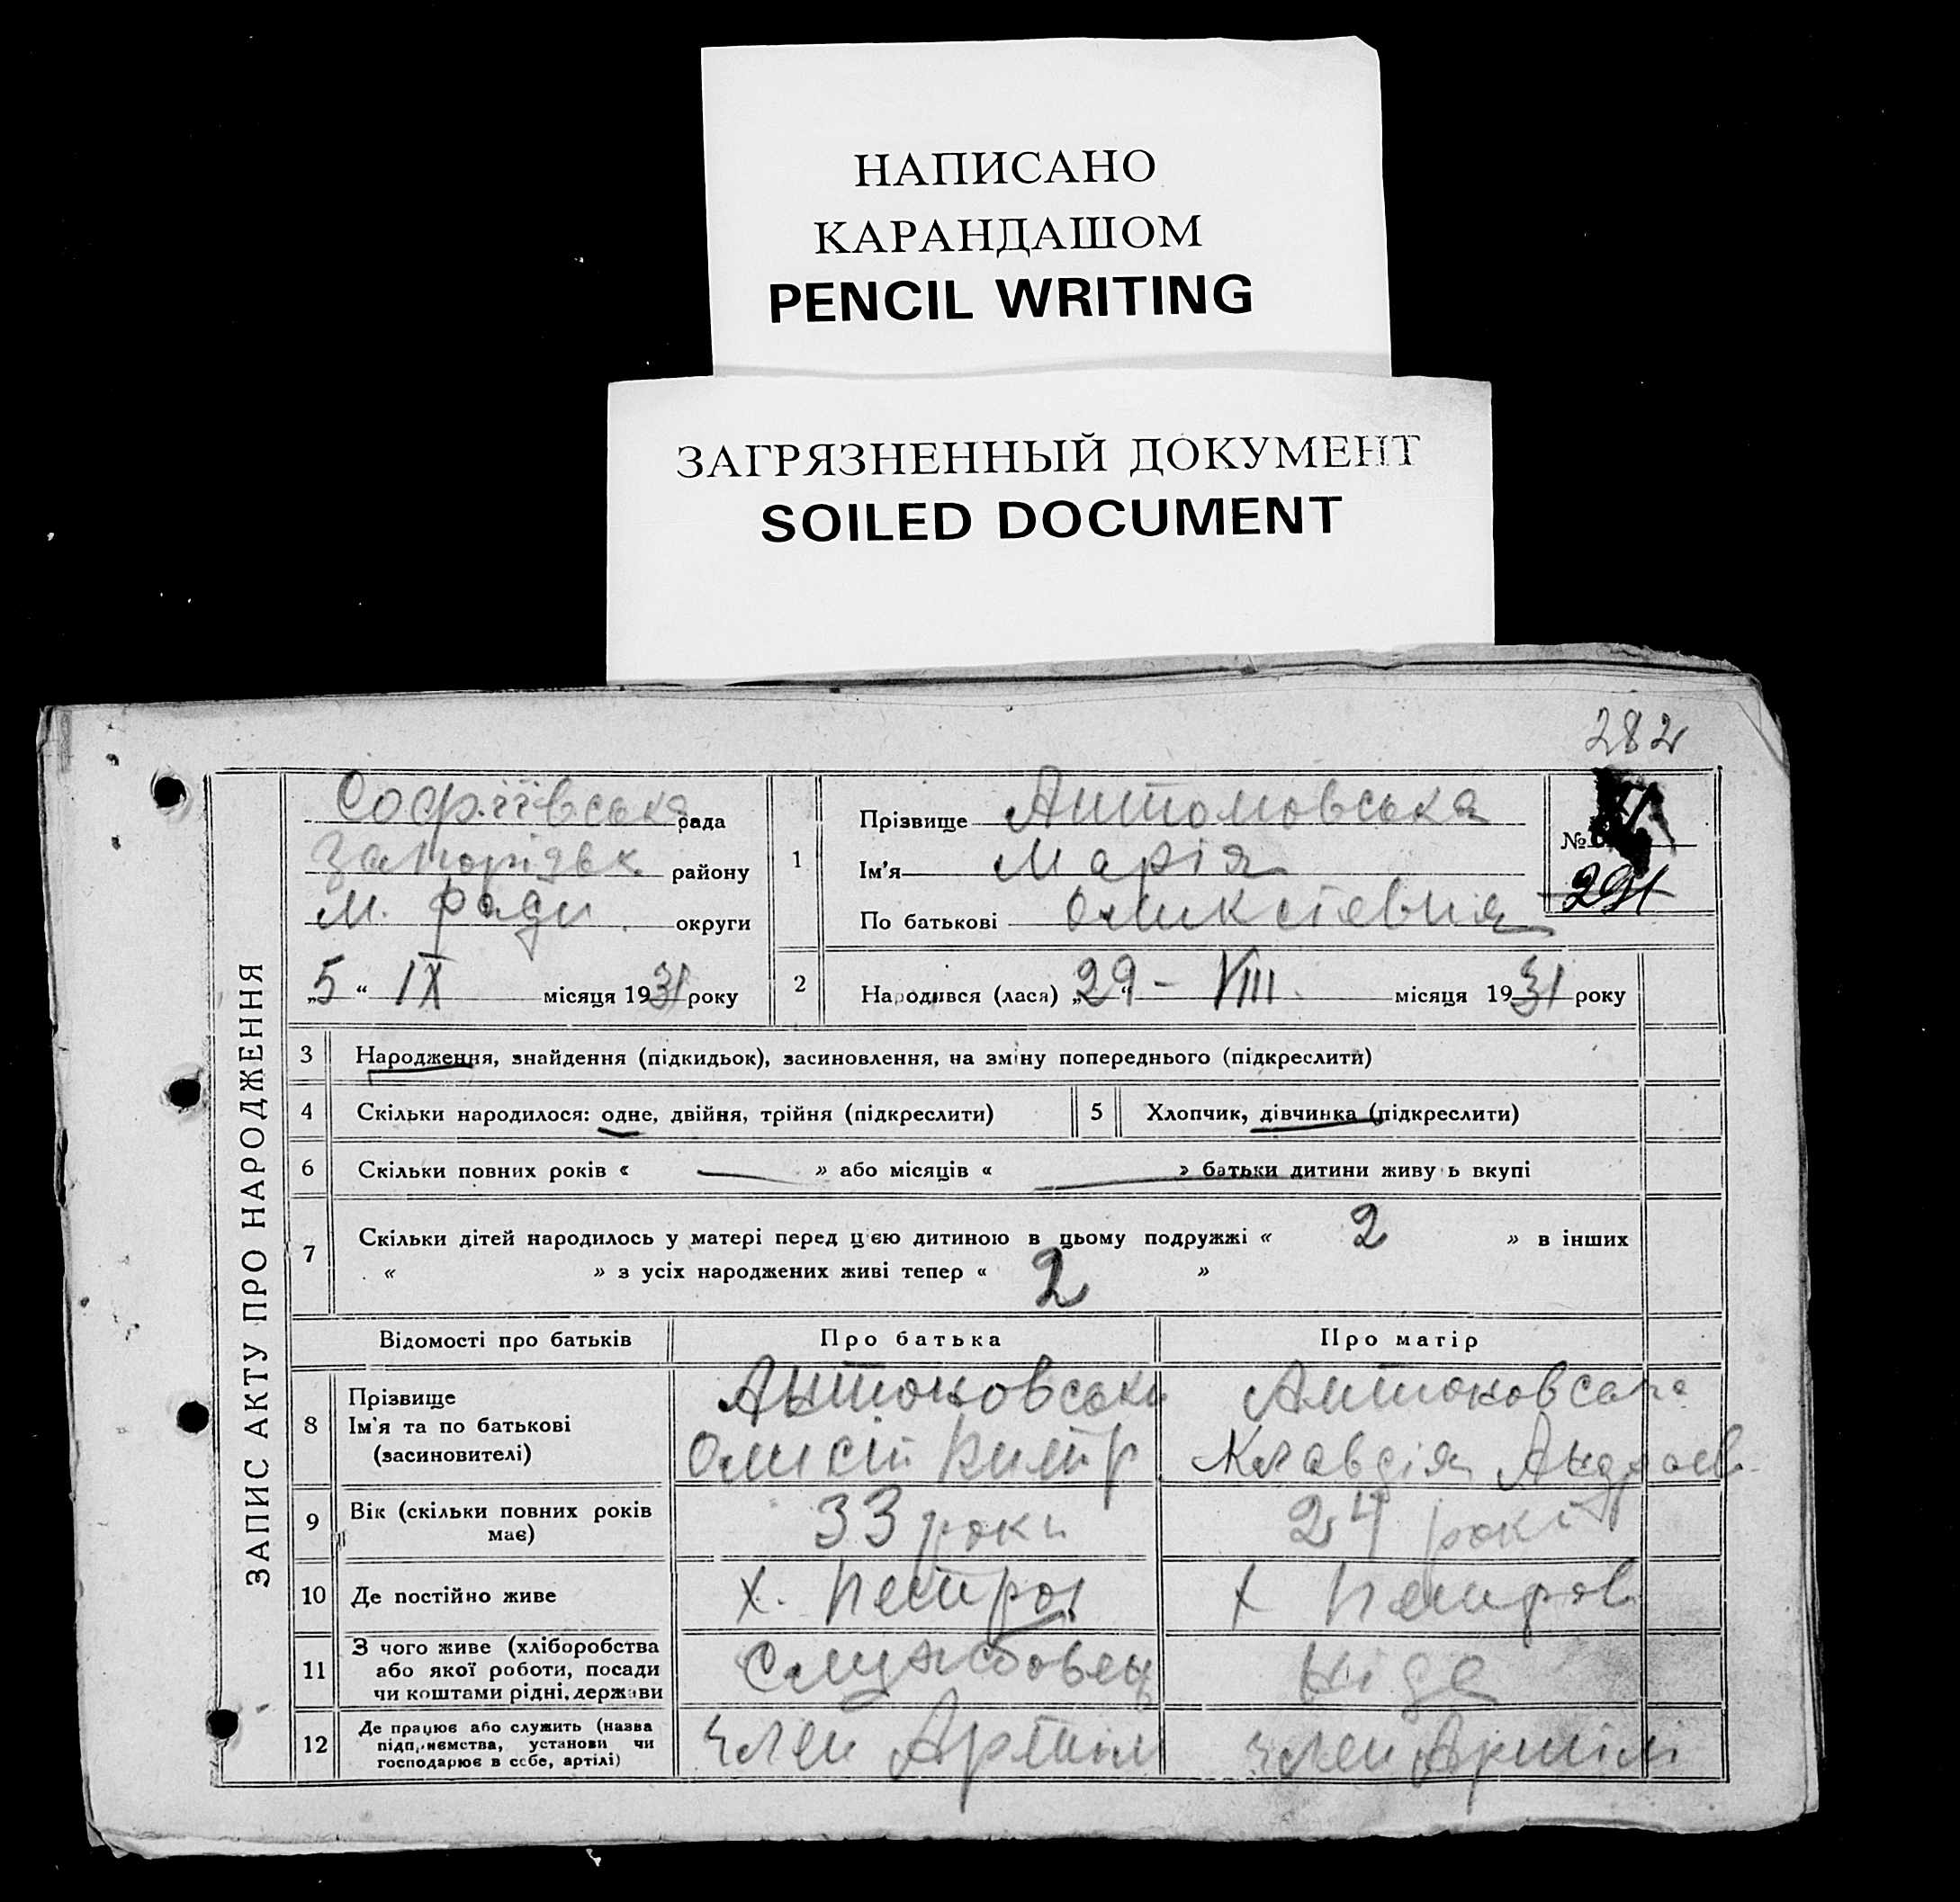 НАПИСАНО
КАРАНДАШОМ
PENCIL WRITING
ЗАГРЯЗНЕННЫЙ ДОКУМЕНТ
SOILED DOCUMENT
282
ЗАПИС АКТУ ПРО НАРОДЖЕННЯ
Софіївська рада
району
М. Ради округи
„5 “ IX місяця 1931 року
1
Прізвище Антоновська
Ім'я Марія
По батькові
№
291
2 Народився (лася) „29 “ – VIII місяця 1931 року
3 Народження, знайдення (підкидьок), засиновлення, на зміну попереднього (підкреслити)
4 Скільки народилося: одне, двійня, трійня (підкреслити) 5 Хлопчик, дівчинка (підкреслити)
6 Скільки повних років « — » або місяців « — » батьки дитини живуть вкупі
7 Скільки дітей народилось у матері перед цією дитиною в цьому подружжі « 2 » в інших
« » з усіх народжених живі тепер « 2 »
Відомості про батьків Про батька Про матір
8 Прізвище
Ім'я та по батькові
(засиновителі)
Антоновськи
Антоновська
Клавдія Андраев
9 Вік (скільки повних років
має)
33 роки 24 рокі
10 Де постійно живе х. Петров х Петров
11 З чого живе (хліборобства
або якої роботи, посади
чи коштами рідні, держави
Службовец Ніде
12 Де працює або служить (назва
підприємства, установи чи
господарює в себе, артілі)
член Артіл член Артілі